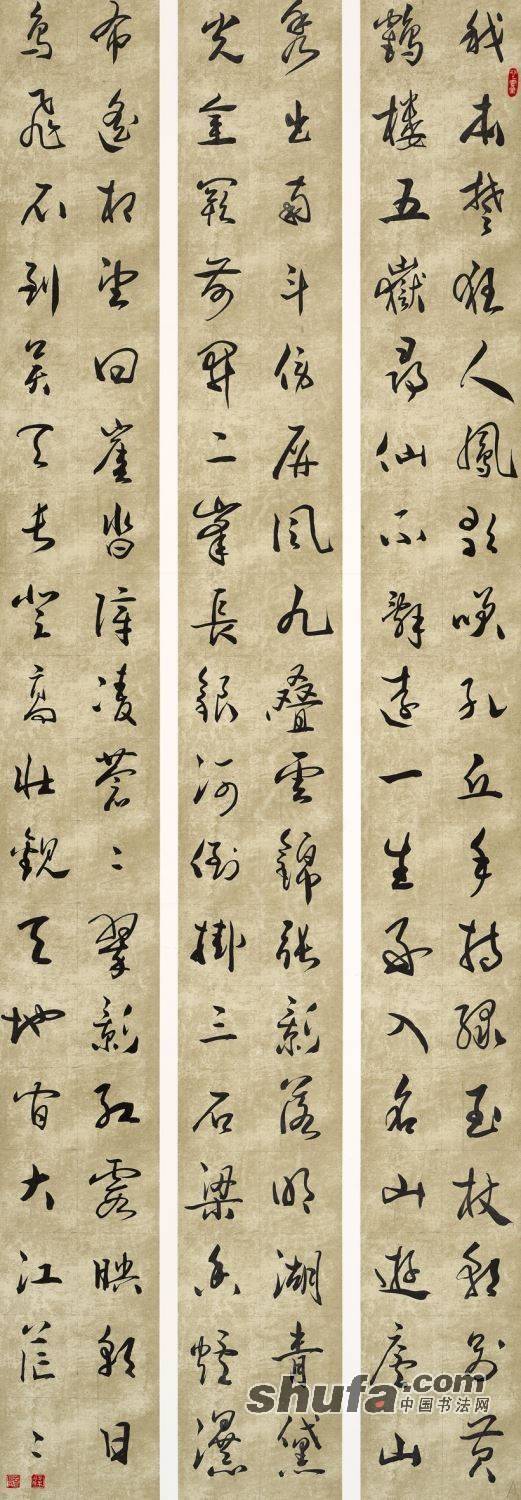 我本楚狂人鳳歌笑孔丘手持綠玉杖朝別黃
鶴樓五嶽尋仙不辭遠一生好入名山遊廬山
秀出南斗傍屏風九疊雲錦張影落明湖青黛
光金闕前開二峯長銀河倒掛三石梁香爐瀑
布遙相望回崖沓障凌蒼〻翠影紅霞映朝日
鳥飛不到吳天長登高壯觀天地間大江茫〻
shufa.com
中国书法网